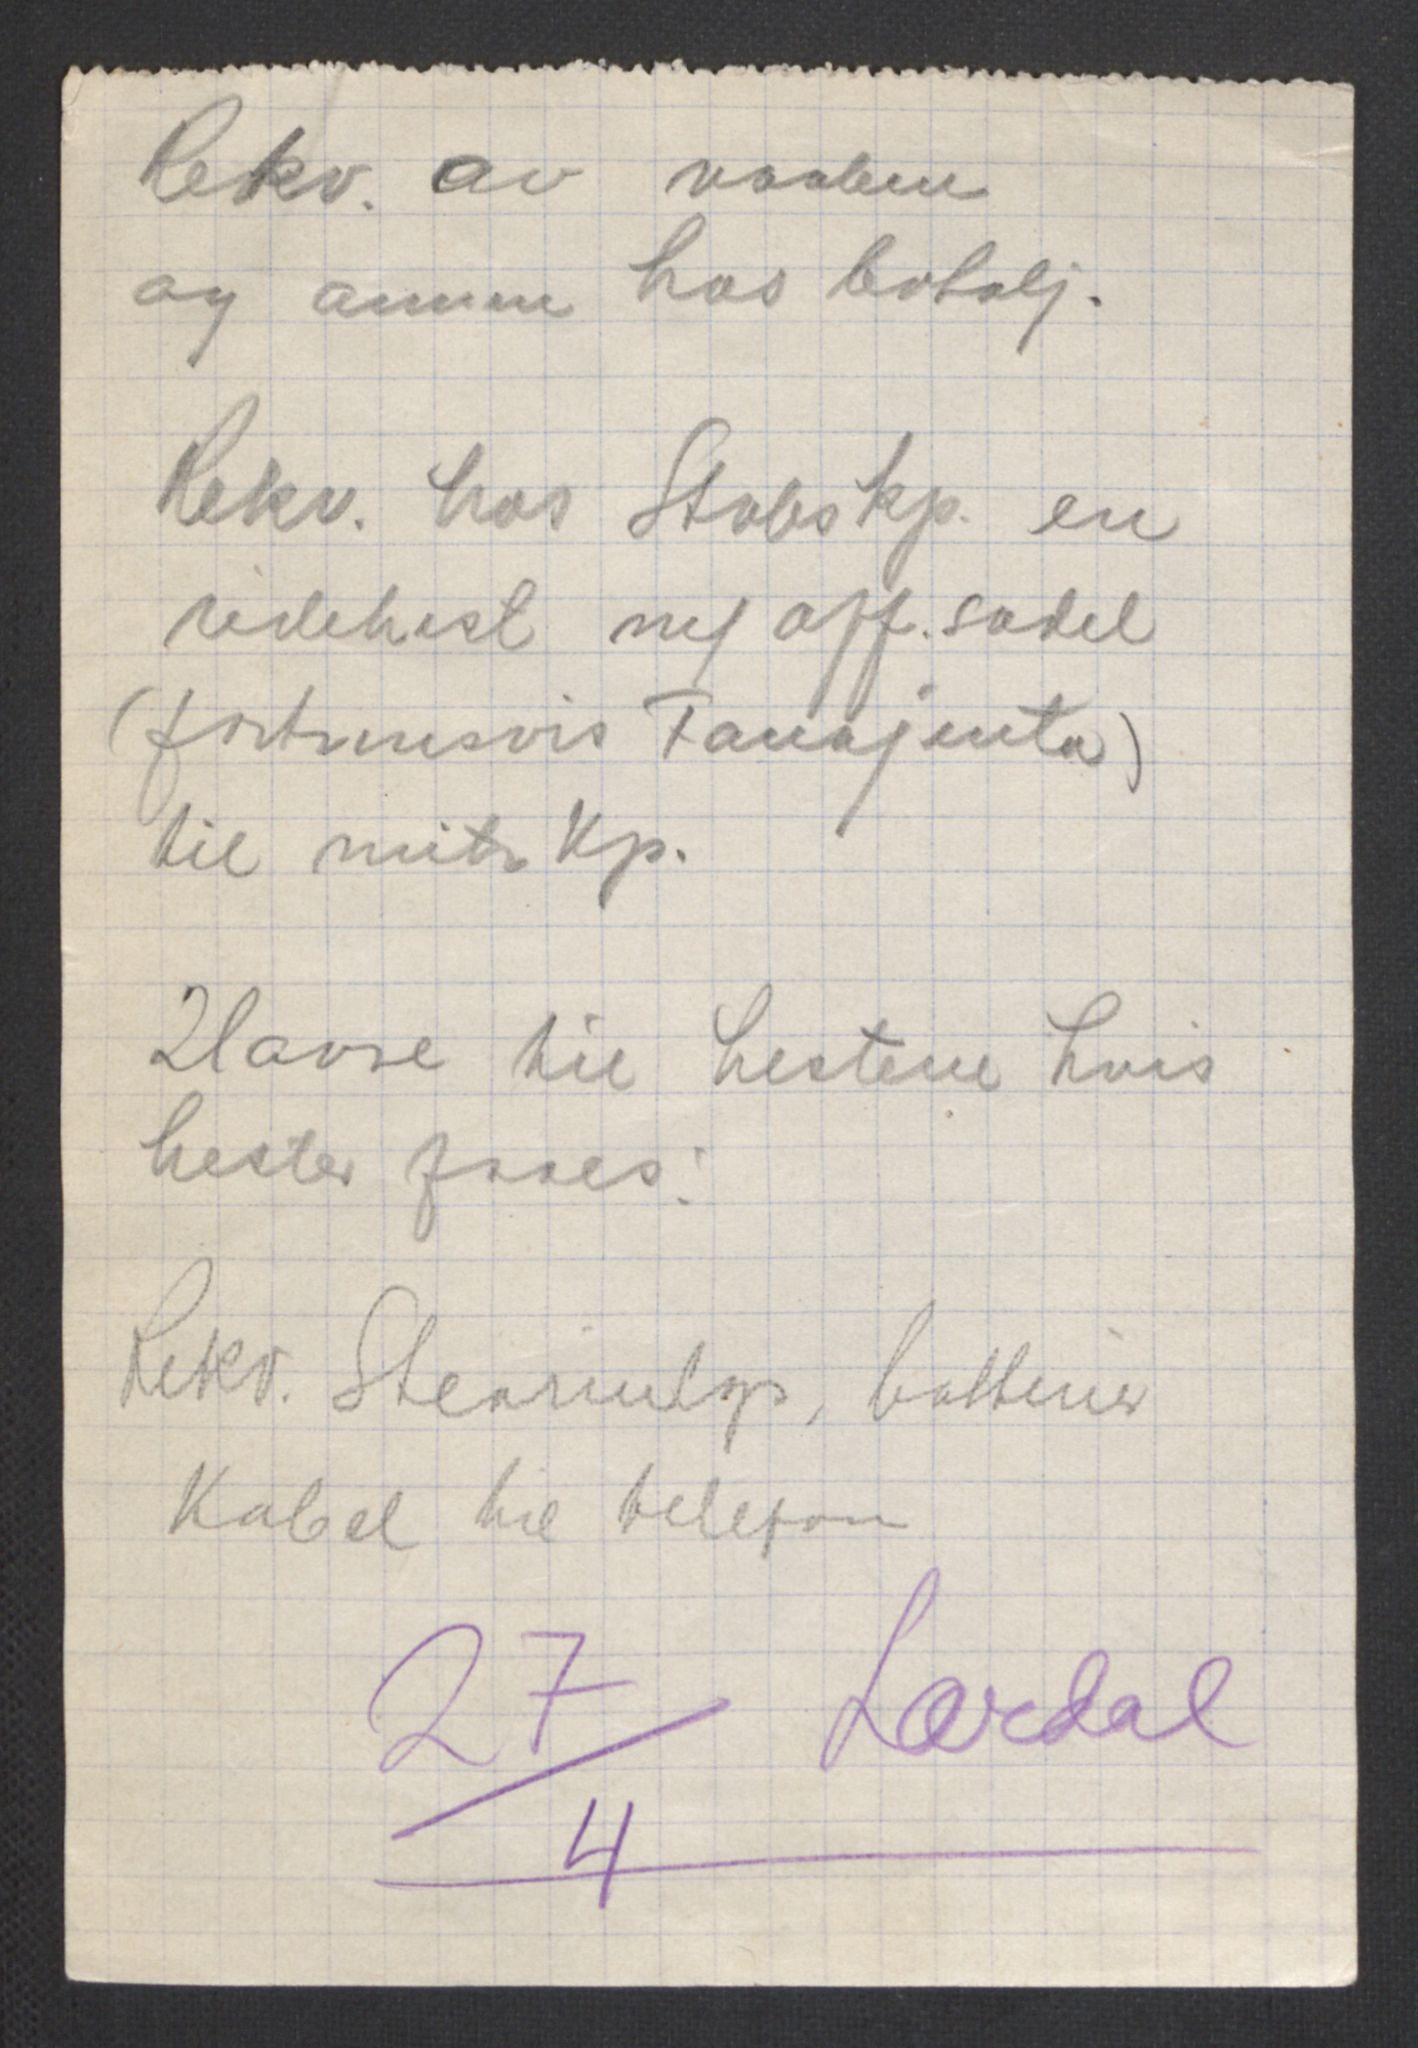 Rekv. av vaaben
og ammu hos batalj.
Rekv. hos Stabskp. en
ridehest m/ off. sadel
(fortrinsvis Fanajenta)
til mitr Kp.
Havre til hestene hvis
hester faaes:
Rekv. Stearinlys, batterier
Kabel til telefon
27/4 Lærdal